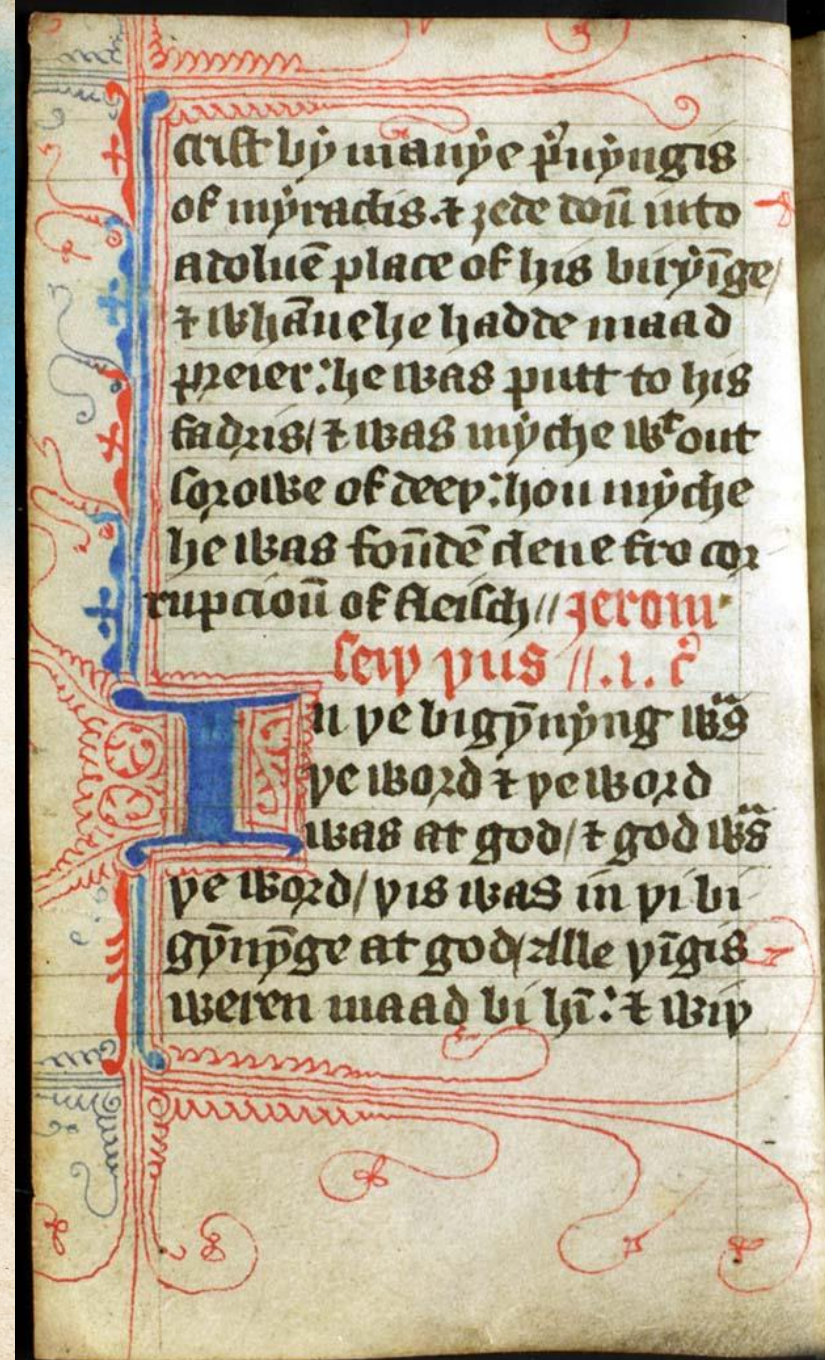 crist bẏ manẏe p̃uẏngis
of mẏraclis. ⁊ ȝede doū into
a doluē place of his birẏīge/
⁊ whāne he hadde maad
preier: he was putt to his
fadris/ ⁊ was mẏche wᵗout
sorowe of deeþ: hou mẏche
he was foūdē clene fro cor
rupcioū of fleisch // Jerom
seiþ þus //. 1. c̃
In þe bigẏ̄nẏng wᵃs
þe word ⁊ þe word
was at god/ ⁊ god wᵃs
þe word/ þis was in þi bi
gẏ̄nẏ̄ge at god/ Alle þīgis
weren maad bi hī: ⁊ wiþ